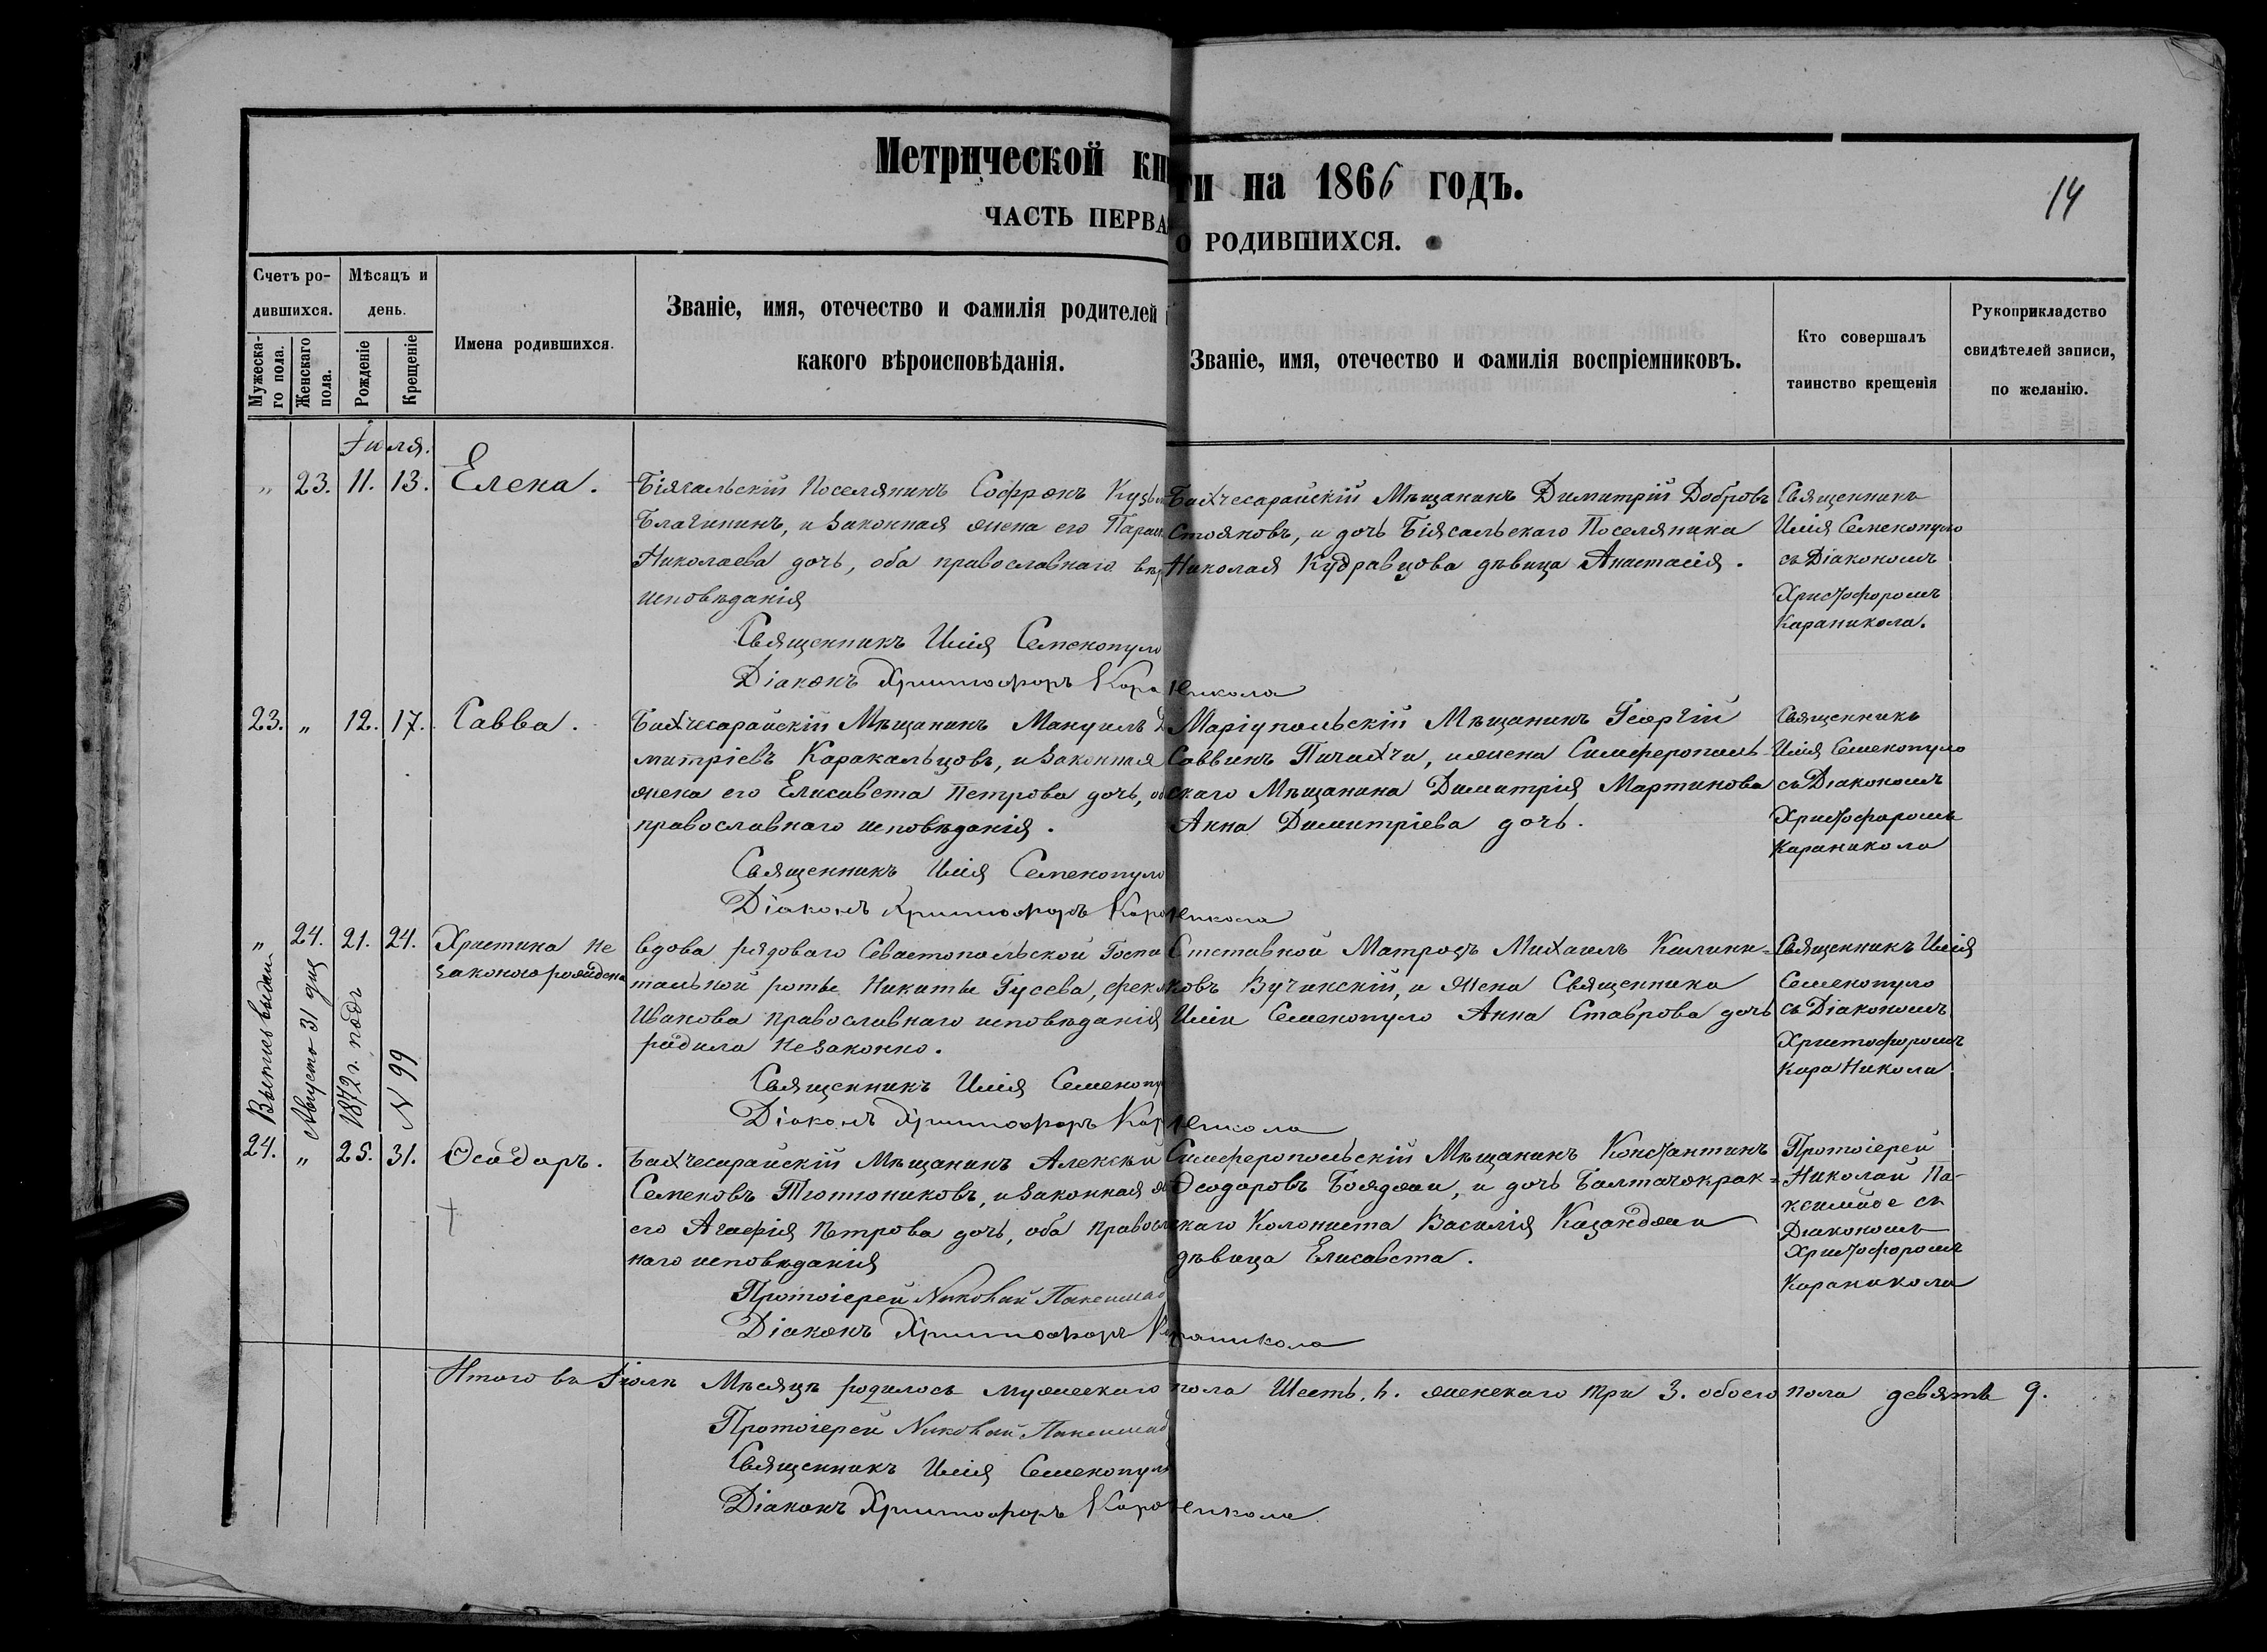 Метрической кн
ти на 1866 годъ.
14
ЧАСТЬ ПЕРВА
О РОДИВШИХСЯ.
Счетъ ро-
дившихся.
Мужеска-
го пола.
Женскаго
пола.
Мѣсяцъ и
день.
Рожденіе
Крещеніе
Имена родившихся.
Званіе, имя, отечество и фамилія родителей и
какого вѣроисповѣданія.
Званіе, имя, отечество и фамилія воспріемниковъ.
Кто совершалъ
таинство крещенія
Рукоприкладство
свидѣтелей записи,
по желанію.
Іюля.
" 23. 11. 13. Елена.
Біясальскій Поселянинъ Софронъ Кузь
Благининъ, и законная жена его Парас
Николаева дочь, оба православнаго вѣр
исповѣданія
Священникъ Илія Семенопуло
Діаконъ Христофоръ Караникола
Бахчесарайскій Мѣщанинъ Димитрій Добровъ
Стояновъ, и дочь Біясальскаго Поселянина
Николая Кудравцова дѣвица Анастасія.
Священникъ
Илія Семенопуло
съ Діакономъ
Христофоромъ
Караникола.
23. " 12. 17. Савва.
Бахчесарайскій Мѣщанинъ Мануилъ Д
митріевъ Каракальцовъ, и законная
жена его Елисавета Петрова дочь, об
православнаго исповѣданія.
Священникъ Илія Семенопуло
Діаконъ Христофоръ Караникола
Маріупольскій Мѣщанинъ Георгій
Саввинъ Пичахчи, и жена Симферополь-
скаго Мѣщанина Димитрія Мартинова
Анна Димитріева дочь.
Священникъ
Илія Семенопуло
съ Діакономъ
Христофоромъ
Караникола
" 24. 21. 24. Христина не
законнорождена
Выпись выдан
Августа 31 дня
1872 г. подъ
N 99
вдова рядоваго Севастопольской Госпи
тальной роты Никиты Гусева,
Иванова православнаго исповѣданія
родила незаконно.
Священникъ Илія Семенопу
Діаконъ Христофоръ Караникола
Отставной Матрозъ Михаилъ Калини-
ковъ Вучинскій, и жена Священника
Иліи Семенопуло Анна Ставрова дочь
Священникъ Илія
Семенопуло
съ Діакономъ
Христофоромъ
Кара Никола
24. " 25. 31. Ѳеодоръ.
Бахчесарайскій Мѣщанинъ Алексѣй
Семеновъ Тютюниковъ, и законная ж
его Агафія Петрова дочь, оба правосл
наго исповѣданія
Протоіерей Николай Паксимад
Діаконъ Христофоръ Караникола
Симферопольскій Мѣщанинъ Константинъ
Ѳеодоровъ Бояджи, и дочь Балтачокрак-
скаго Колониста Василія Казанджи
дѣвица Елисавета.
Протоіерей
Николай Па-
ксимаде съ
Діакономъ
Христофоромъ
Караникола
Итого въ Іюлѣ Мѣсяцѣ родилось мужескаго пола Шесть, 6. женскаго три 3. обоего пола девять 9.
Протоіерей Николай Паксимад
Священникъ Илія Семенопуло
Діаконъ Христофоръ Караникола